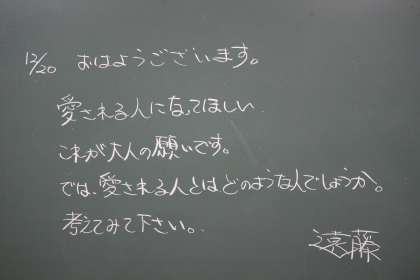 12/20 おはようございます。
愛される人になってほしい
これが大人の願いです。
では、愛される人とはどのような人でしょうか。
考えてみて下さい。
遠藤